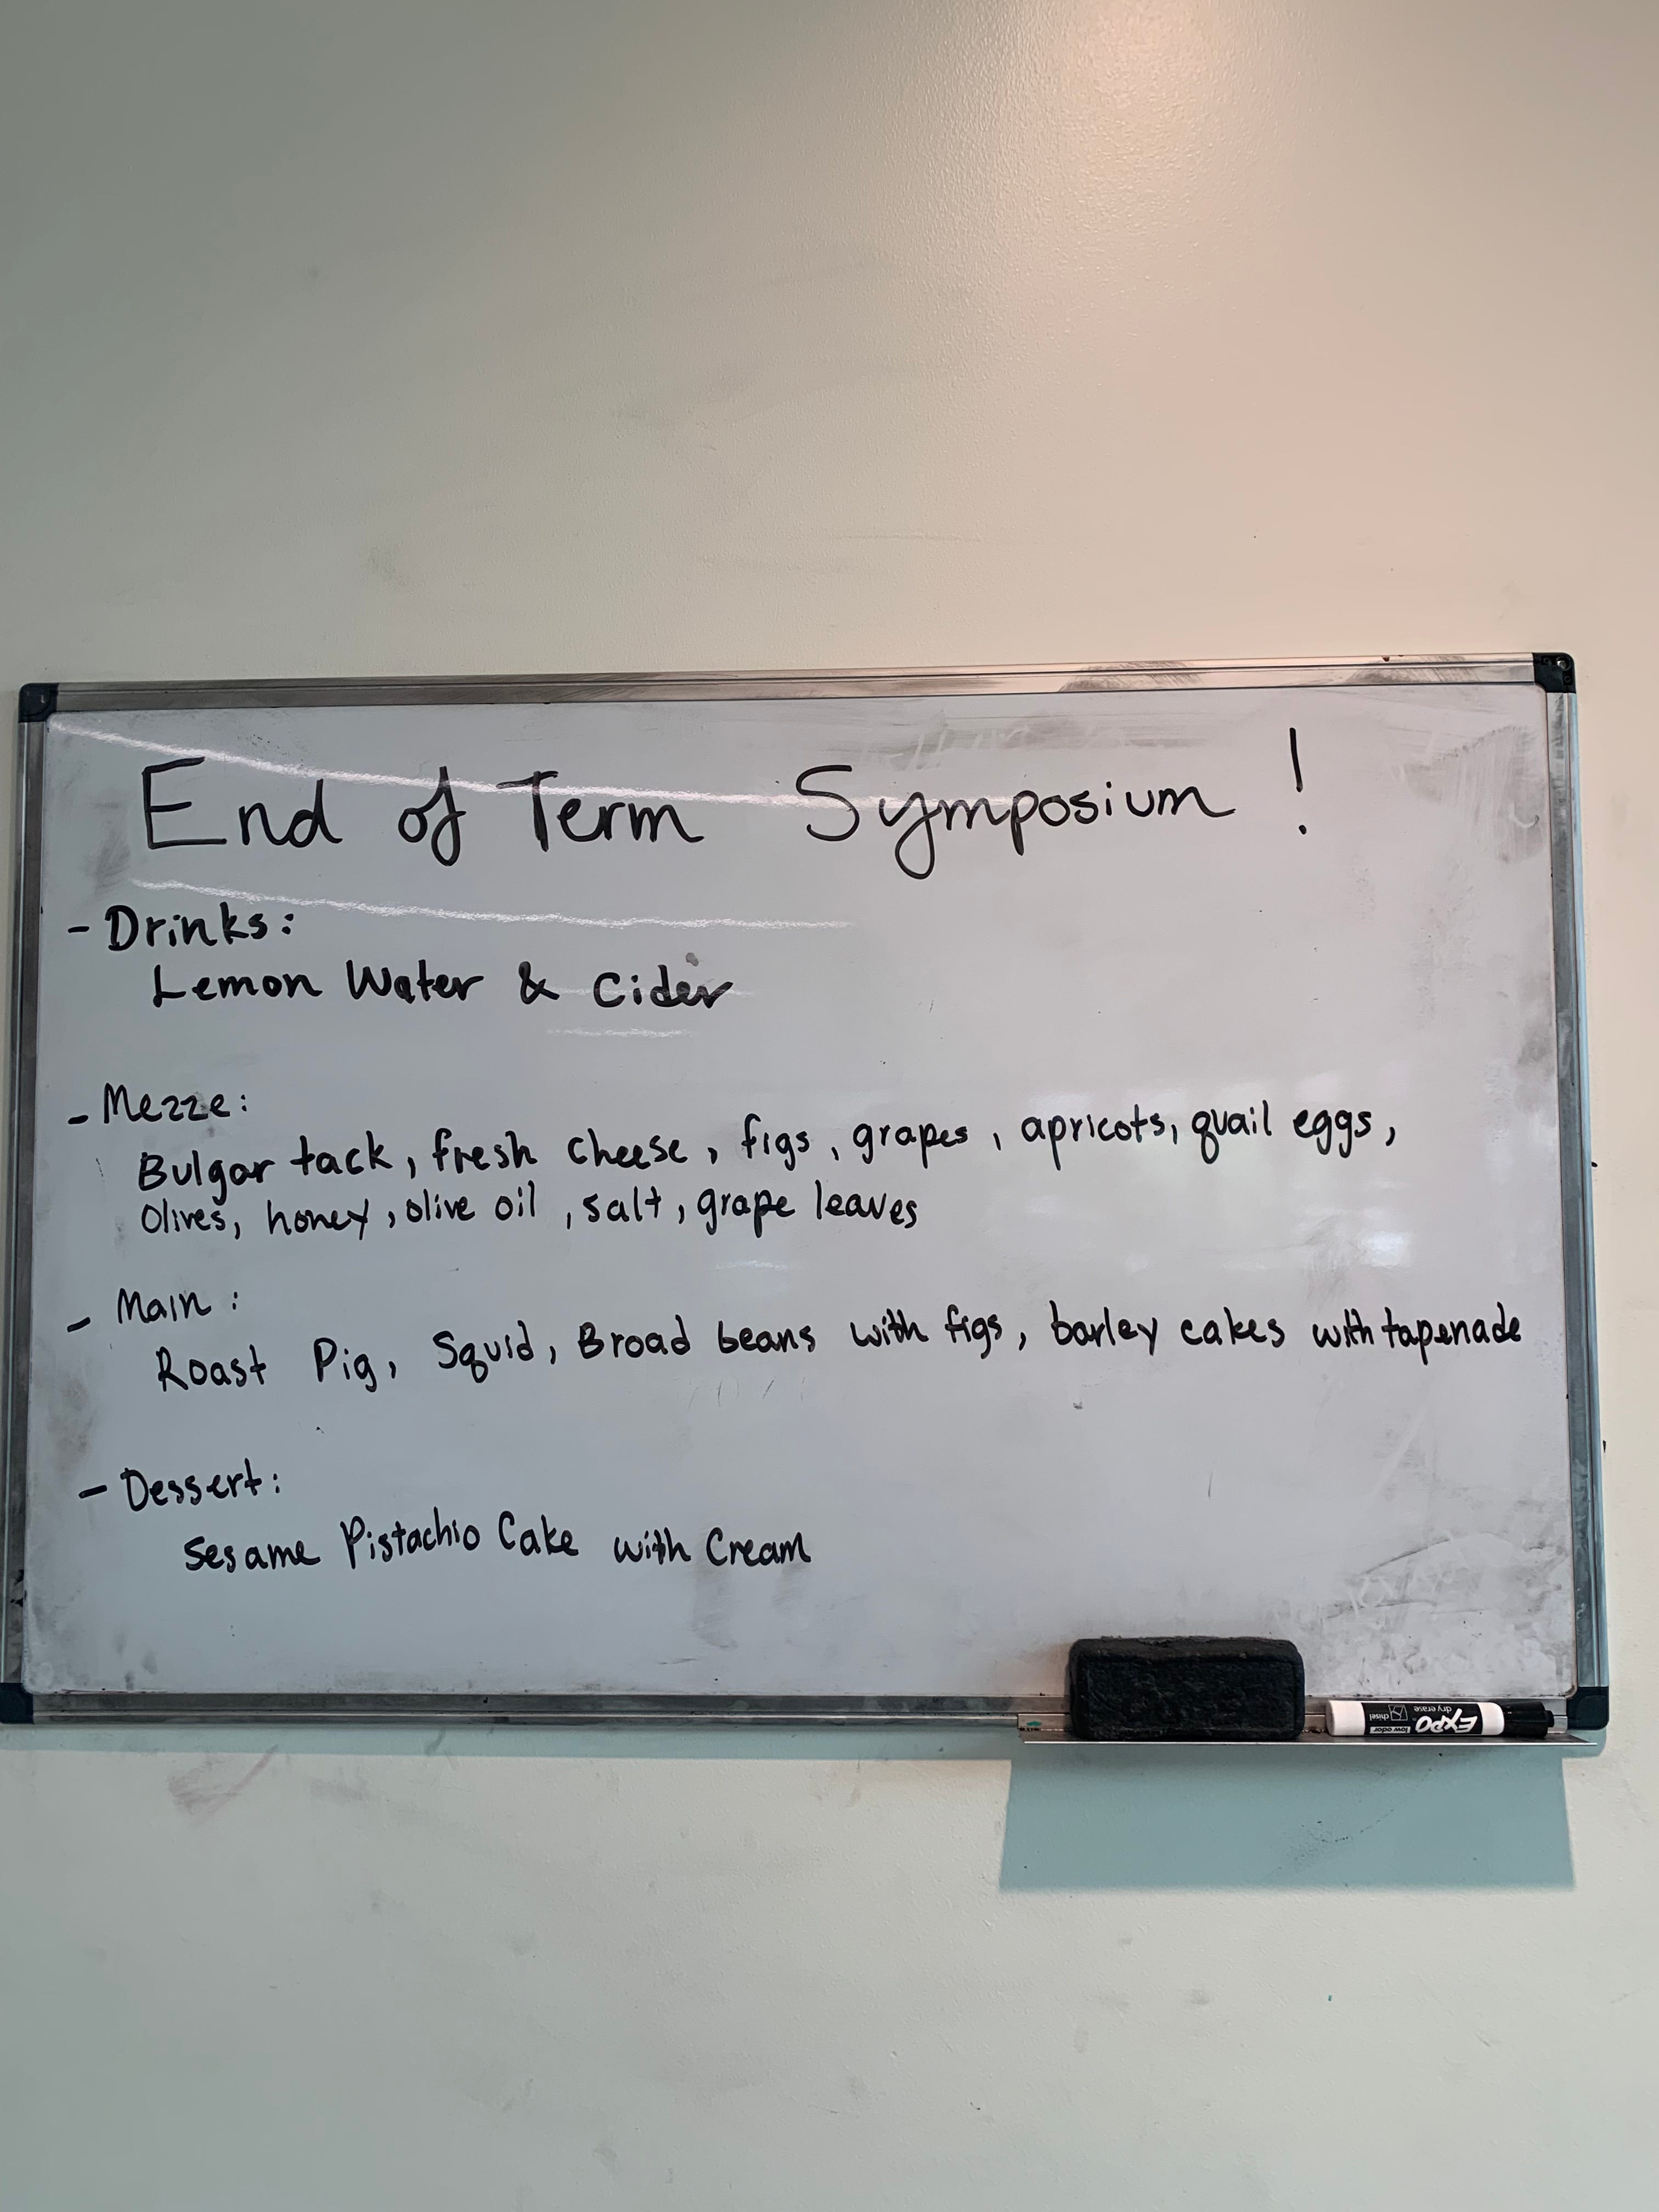 End of Term Symposium!
- Drinks:
Lemon Water & Cider
- Mezze:
Bulgar tack, fresh cheese, figs, grapes, apricots, quail eggs,
Olives, honey, olive oil, salt, grape leaves
- Main:
Roast Pig, Squid, Broad beans with figs, barley cakes with tapenade
- Dessert:
Sesame Pistachio Cake with Cream
EXPO
low odor
dry erase
chisel